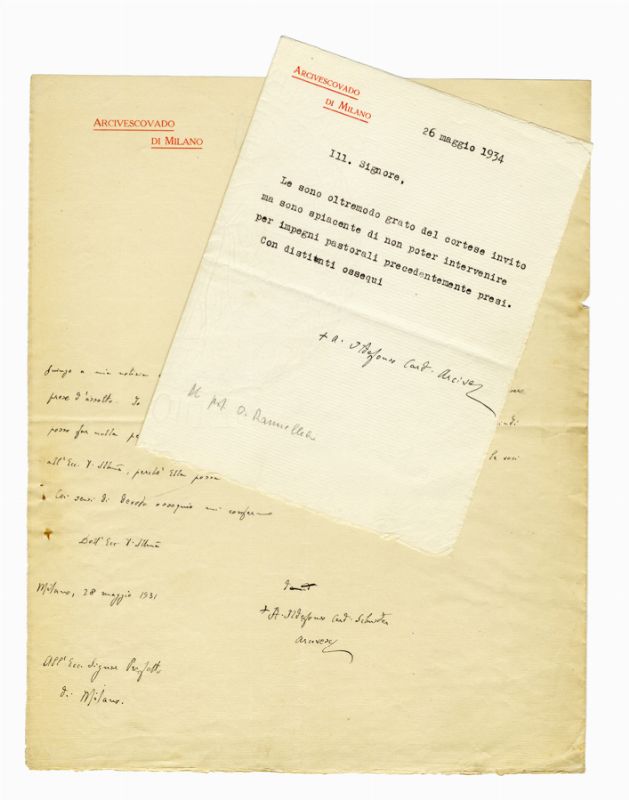 ARCIVESCOVADO
DI MILANO
26 maggio 1934
Ill. Signore,
Le sono oltremodo grato del cortese invito
ma sono spiacente di non poter intervenire
per impegni pastorali precedentemente presi.
Con distinti ossequi
+ A. Ildefonso Card. Arcivesc
Al prof. O.
ARCIVESCOVADO
DI MILANO
Giunge a mia notizia
prese d'assalto. Io
posso far nulla
all'Ecc. V. Ill.ma, perchè Ella possa
la sua
Coi sensi di devoto ossequio mi confermo
Dell'Ecc. V. Ill.ma
Milano, 28 maggio 1931
+ A. Ildefonso Card. Schuster
arcivesc
All'Ecc. Signor Prefetto
di Milano.